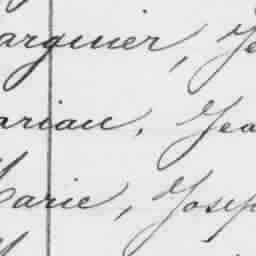 arquier, Je
arian, Jea
Marie, Josep